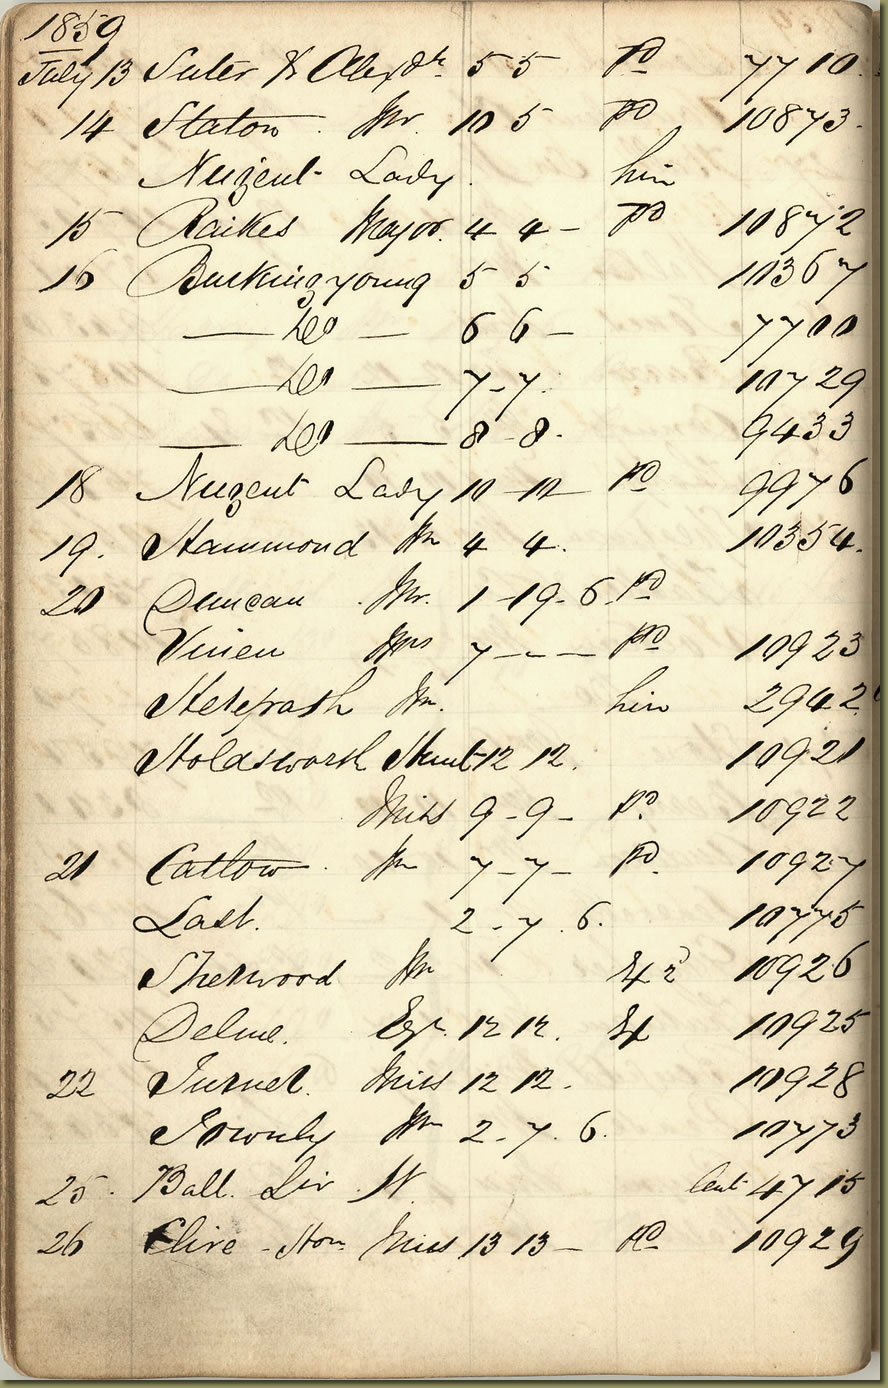 1859
July 13 Suter & Alexdr 5 5 Pd 7710.
14 Staton Mr. 10 5 Pd 10873.
Nugent Lady. hin
15 Raikes Major. 4 4 - Pd 10872
16 Bucking young 5 5 10367
— Do — 6 6 - 7700
— Do — 7 - 7. 10729
— Do — 8 - 8. 9433
18 Nugent Lady 10 - 12 - Pd 9976
19. Hammond Mr 4 4. 10354.
20 Duncan Mr. 1 - 19 - 6. Pd
Vinen Mrs 7 - - - Pd 10923
Mr. hin 2942
Holdsworth Hunt 12 12. 10921
Miss 9 - 9 - Pd. 10922
21 Catlow Mr 7 - 7 - Pd. 10927
Last. 2 - 7. 6. 10775
Sherwood Mr 10926
Delme. Esqr. 12 12. 10925
22 Turner. Miss 12 12. 10928
Townly Mr 2. 7. 6. 10773
25. Ball. Sir W. 4715
26 Clive - Hon. Miss 13 13 - Pd 10929